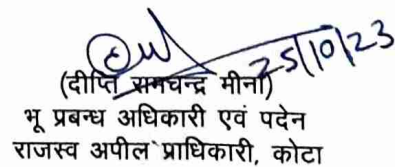 25/10/23
(दीप्ति रामचन्द्र मीना)
भू प्रबन्ध अधिकारी एवं पदेन
राजस्व अपील प्राधिकारी, कोटा